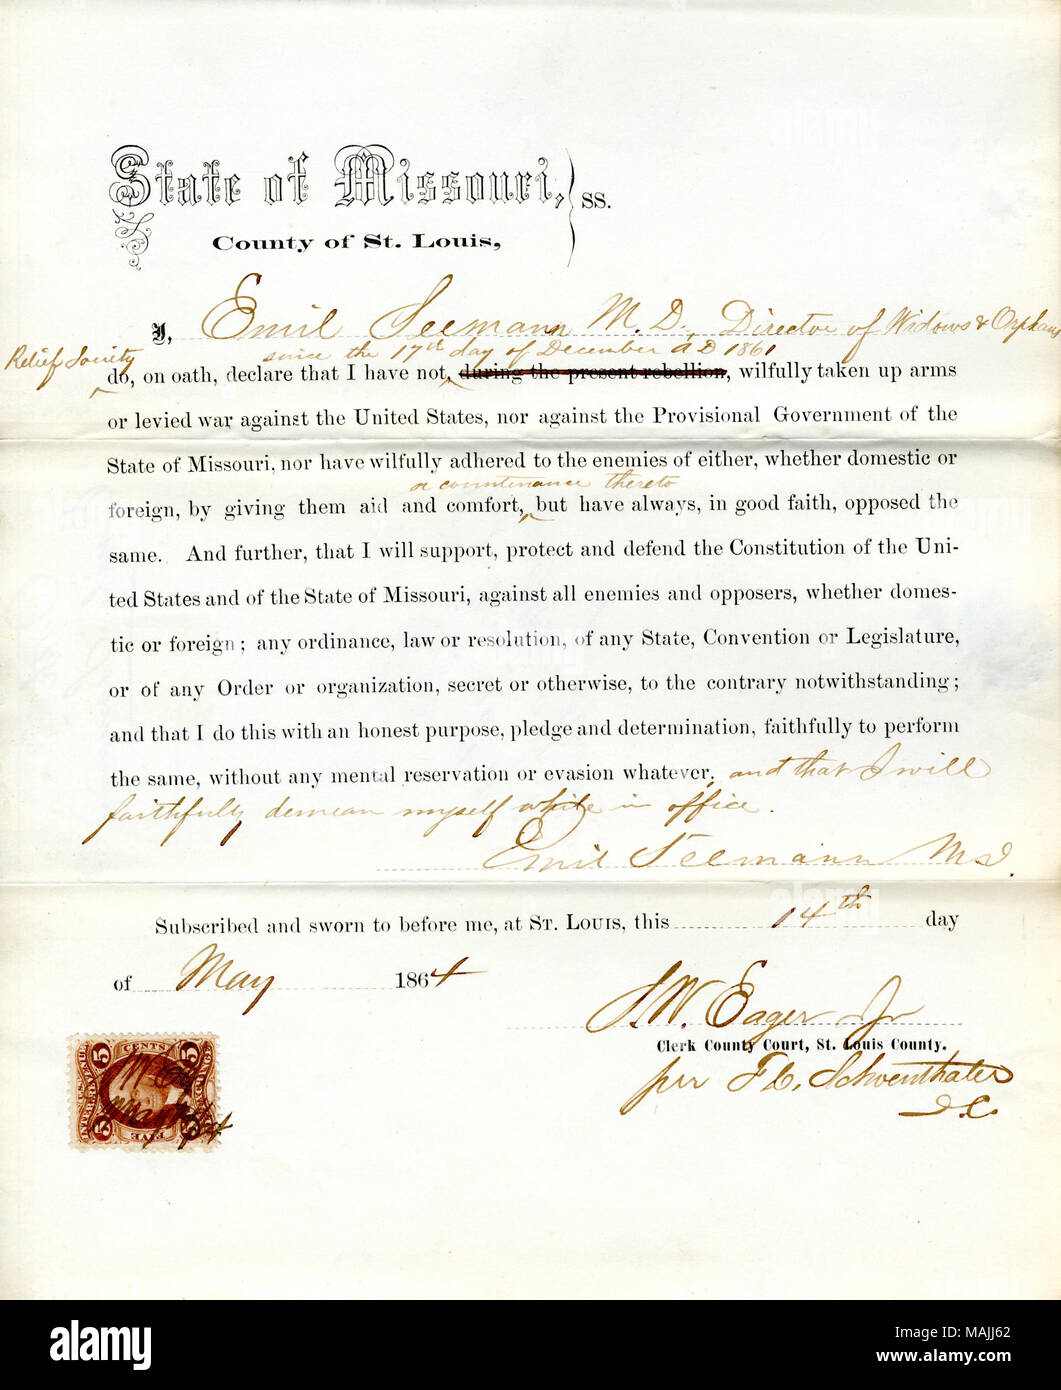 State of Missouri, } ss.
County of St. Louis,
I, Emil Seemann M.D., Director of Widows & Orphans
Relief Society since the 17th day of December A D 1861
do, on oath, declare that I have not, during the present rebellion, wilfully taken up arms
or levied war against the United States, nor against the Provisional Government of the
State of Missouri, nor have wilfully adhered to the enemies of either, whether domestic or
or countenance thereto
foreign, by giving them aid and comfort, but have always, in good faith, opposed the
same. And further, that I will support, protect and defend the Constitution of the Uni-
ted States and of the State of Missouri, against all enemies and opposers, whether domes-
tic or foreign; any ordinance, law or resolution, of any State, Convention or Legislature,
or of any Order or organization, secret or otherwise, to the contrary notwithstanding;
and that I do this with an honest purpose, pledge and determination, faithfully to perform
the same, without any mental reservation or evasion whatever, and that I will
faithfully demean myself while in office.
Emil Seemann MD.
Subscribed and sworn to before me, at St. Louis, this 14th day
of May 1864
S.W. Eager Jr
Clerk County Court, St. Louis County.
per F.C. Schoenthaler
D.C.
5 CENTS 5
INTER. REV.
5 FIVE 5
alamy
Image ID: MAJJ62
www.alamy.com